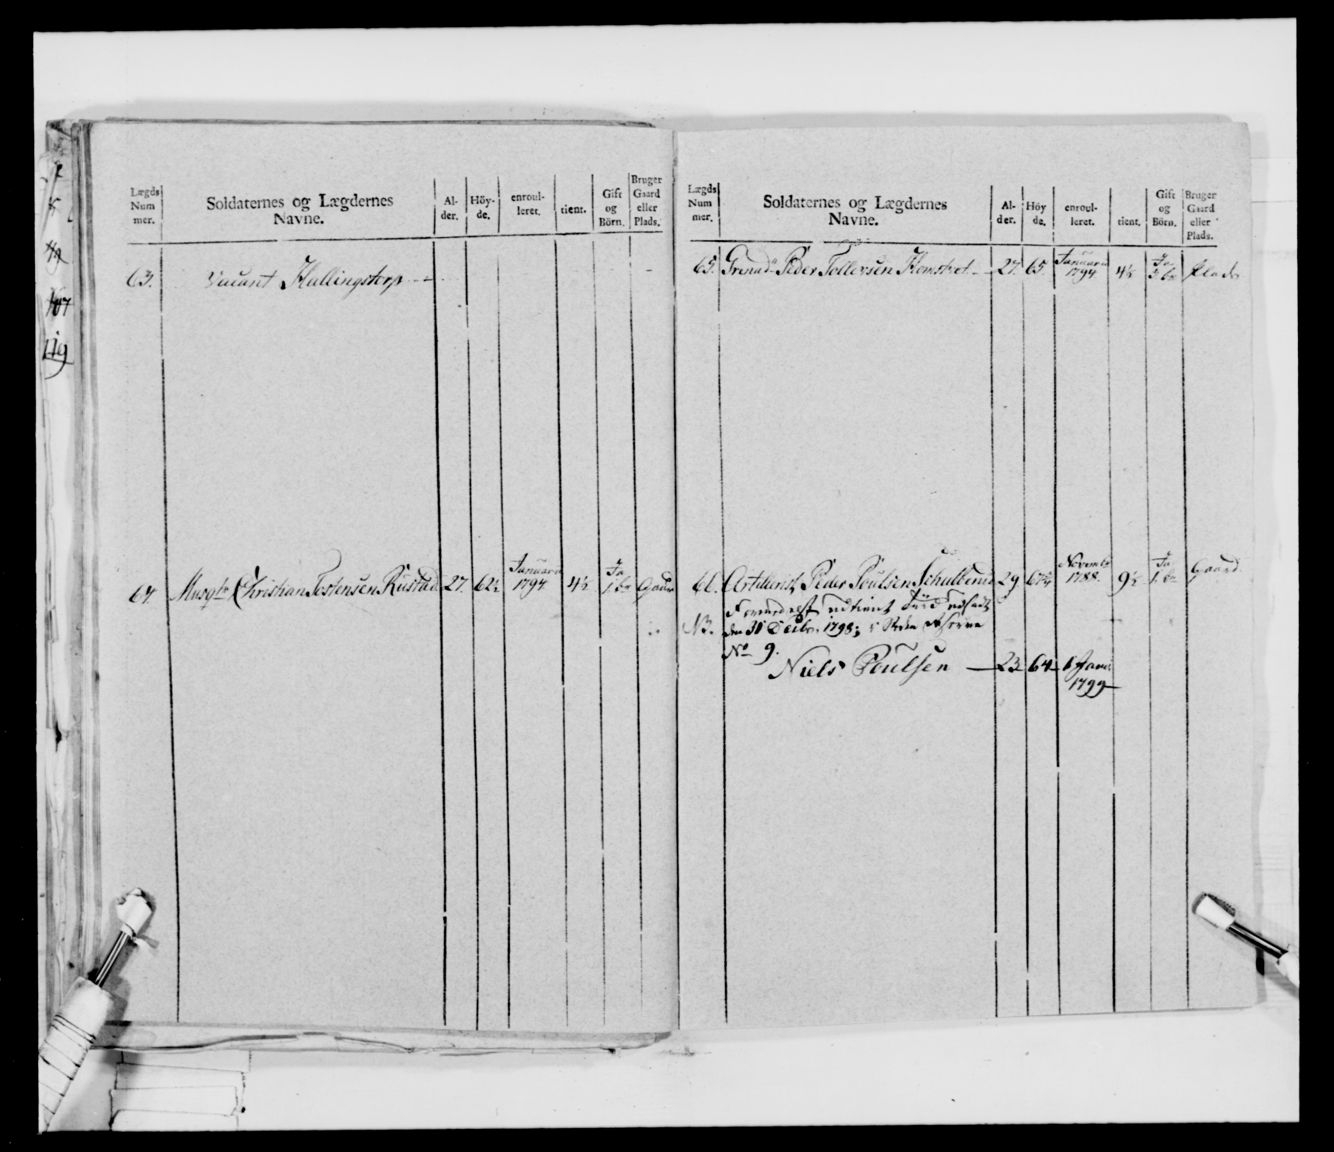 Lægds Num mer. Soldaternes og Lægdernes Navne. Al- der. Höy- de. enroul- leret. tient. Gift og Börn. Bruger Gaard eller Plads.
63. Vacant Hullingstorp
64. Musqtr Christian Tostensen Rustad 27. 62½ Januari 1794 4½ Ja 1 bn Gaard
Lægds Num mer. Soldaternes og Lægdernes Navne. Al- der. Höy de. enroul- leret. tient. Gift og Börn. Bruger Gaard eller Plads.
65. Grenadr Peder Tollevsen 27. 65. Januari 1794 4½ Ja 3 bn Plads
66. Artillerist Peder Poulsen 29 67¾ Novembr 1788. 9½ Ja 1. bn Gaard
NB. den 31 Decbr 1798;
No 9.
Niels Poulsen 23 64 1 Janu 1799